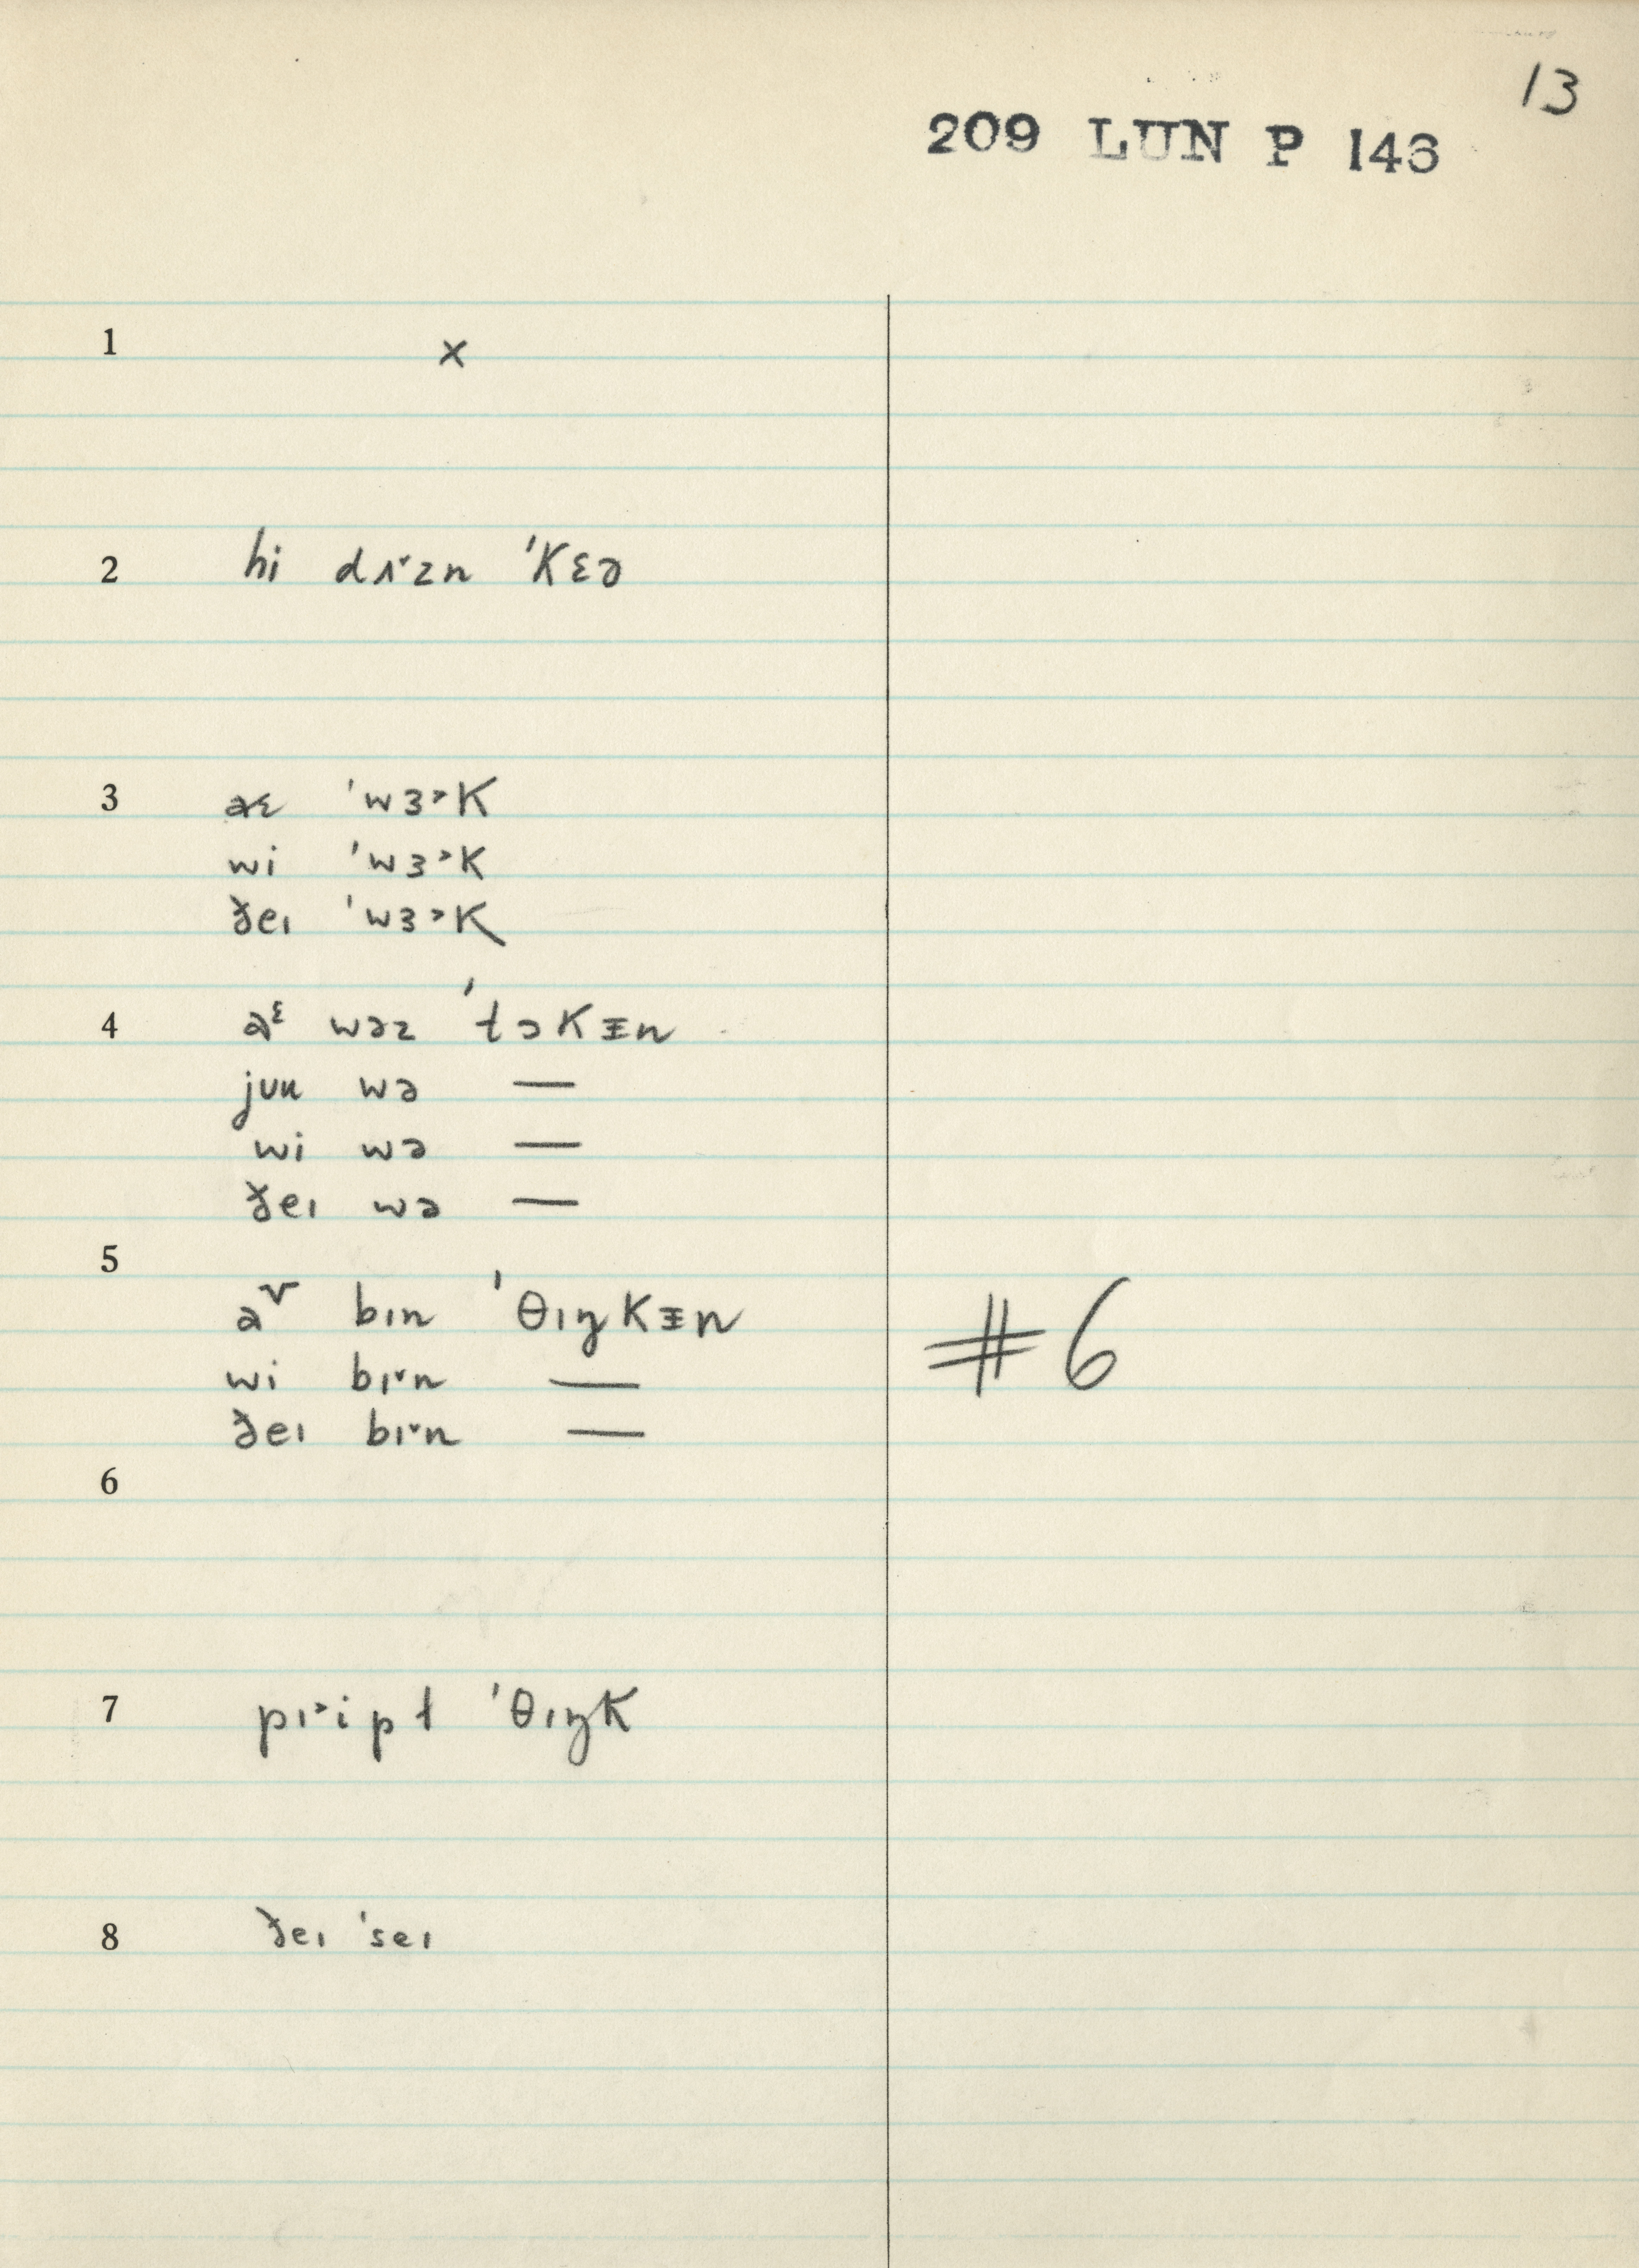 13
209 LUN P 146
1 x
2 hi dʌ˅zn 'kɛə
3 aɛ 'wɜ˃k
wi 'wɜ˃k
ðeɪ 'wɜ˃k
4 aᵋ wəz 'tɔkɪ̵n
jun wə —
wi wə —
ðeɪ wə —
5 a˅ bɪn 'θɪŋkɪ̵n
#6
wi bɪ˅n —
ðeɪ bɪ˅n —
6
7 pɪ˃ipɫ 'θɪŋk
8 ðeɪ 'seɪ